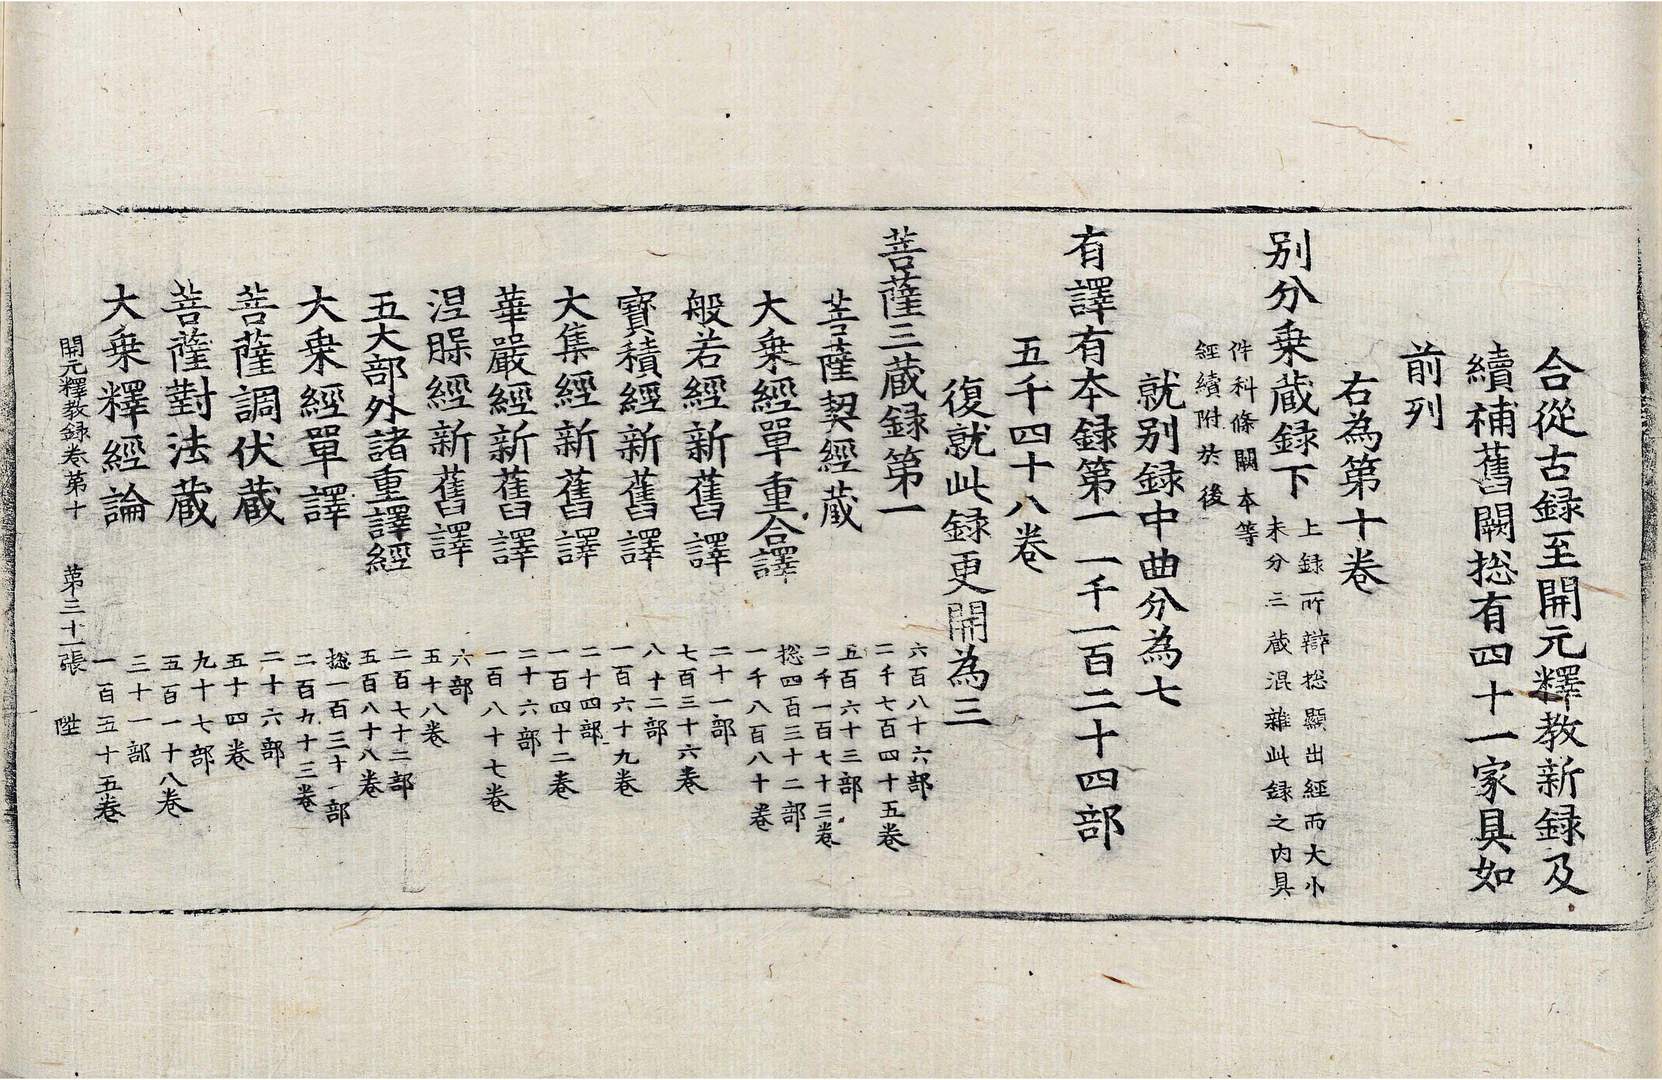 合從古録至開元釋教新録及
續補舊闕揔有四十一家具如
前列
右為第十卷
别分乗蔵録下
上録所辯揔顯出經而大小
未分三蔵混雜此録之内具
件科條闕本等
經續附於後
就别録中曲分為七
有譯有本録第一一千一百二十四部
五千四十八卷
復就此録更開為三
菩薩三蔵録第一
六百八十六部
二千七百四十五卷
菩薩契經蔵
五百六十三部
二千一百七十三卷
大乗經單重合譯
揔四百三十二部
一千八百八十卷
般若經新舊譯
二十一部
七百三十六卷
寳積經新舊譯
八十二部
一百六十九卷
大集經新舊譯
二十四部
一百四十二卷
華嚴經新舊譯
二十六部
一百八十七卷
涅脲經新舊譯
六部
五十八卷
五大部外諸重譯經
二百七十二部
五百八十八卷
大乗經單譯
揔一百三十一部
二百九十三卷
菩薩調伏蔵
二十六部
五十四卷
菩薩對法蔵
九十七部
五百一十八卷
大乗釋經論
二十一部
一百五十五卷
開元釋教録卷第十 第三十一張 陞